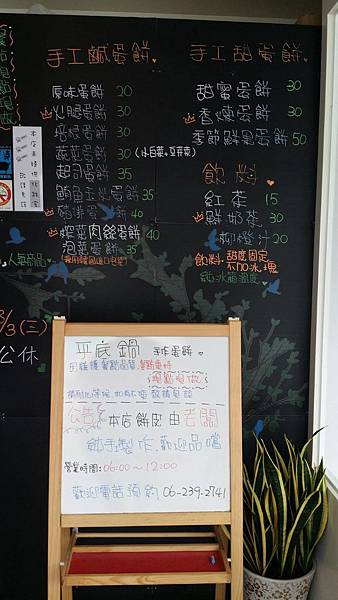 手工鹹蛋餅
原味蛋餅 20
火腿蛋餅 30
培根蛋餅 30
蔬菜蛋餅 30 (小白菜+豆芽菜)
起司蛋餅 35
鮪魚玉米蛋餅 35
豬排蛋餅 40
榨菜肉絲蛋餅 40
泡菜蛋餅 35
人氣商品
8/3 (三)
公休
手工甜蛋餅
甜蜜蛋餅 30
香蕉蛋餅 30
季節鮮果蛋餅 50
飲料
紅茶 15
鮮奶茶 30
柳橙汁 20
飲料: 甜度固定
不加冰塊
平底鍋 手作蛋餅
現點現做
公告 本店餅皮由老闆
純手製作.歡迎品嚐
營業時間: 06:00~12:00
歡迎電話預約 06-239-2741